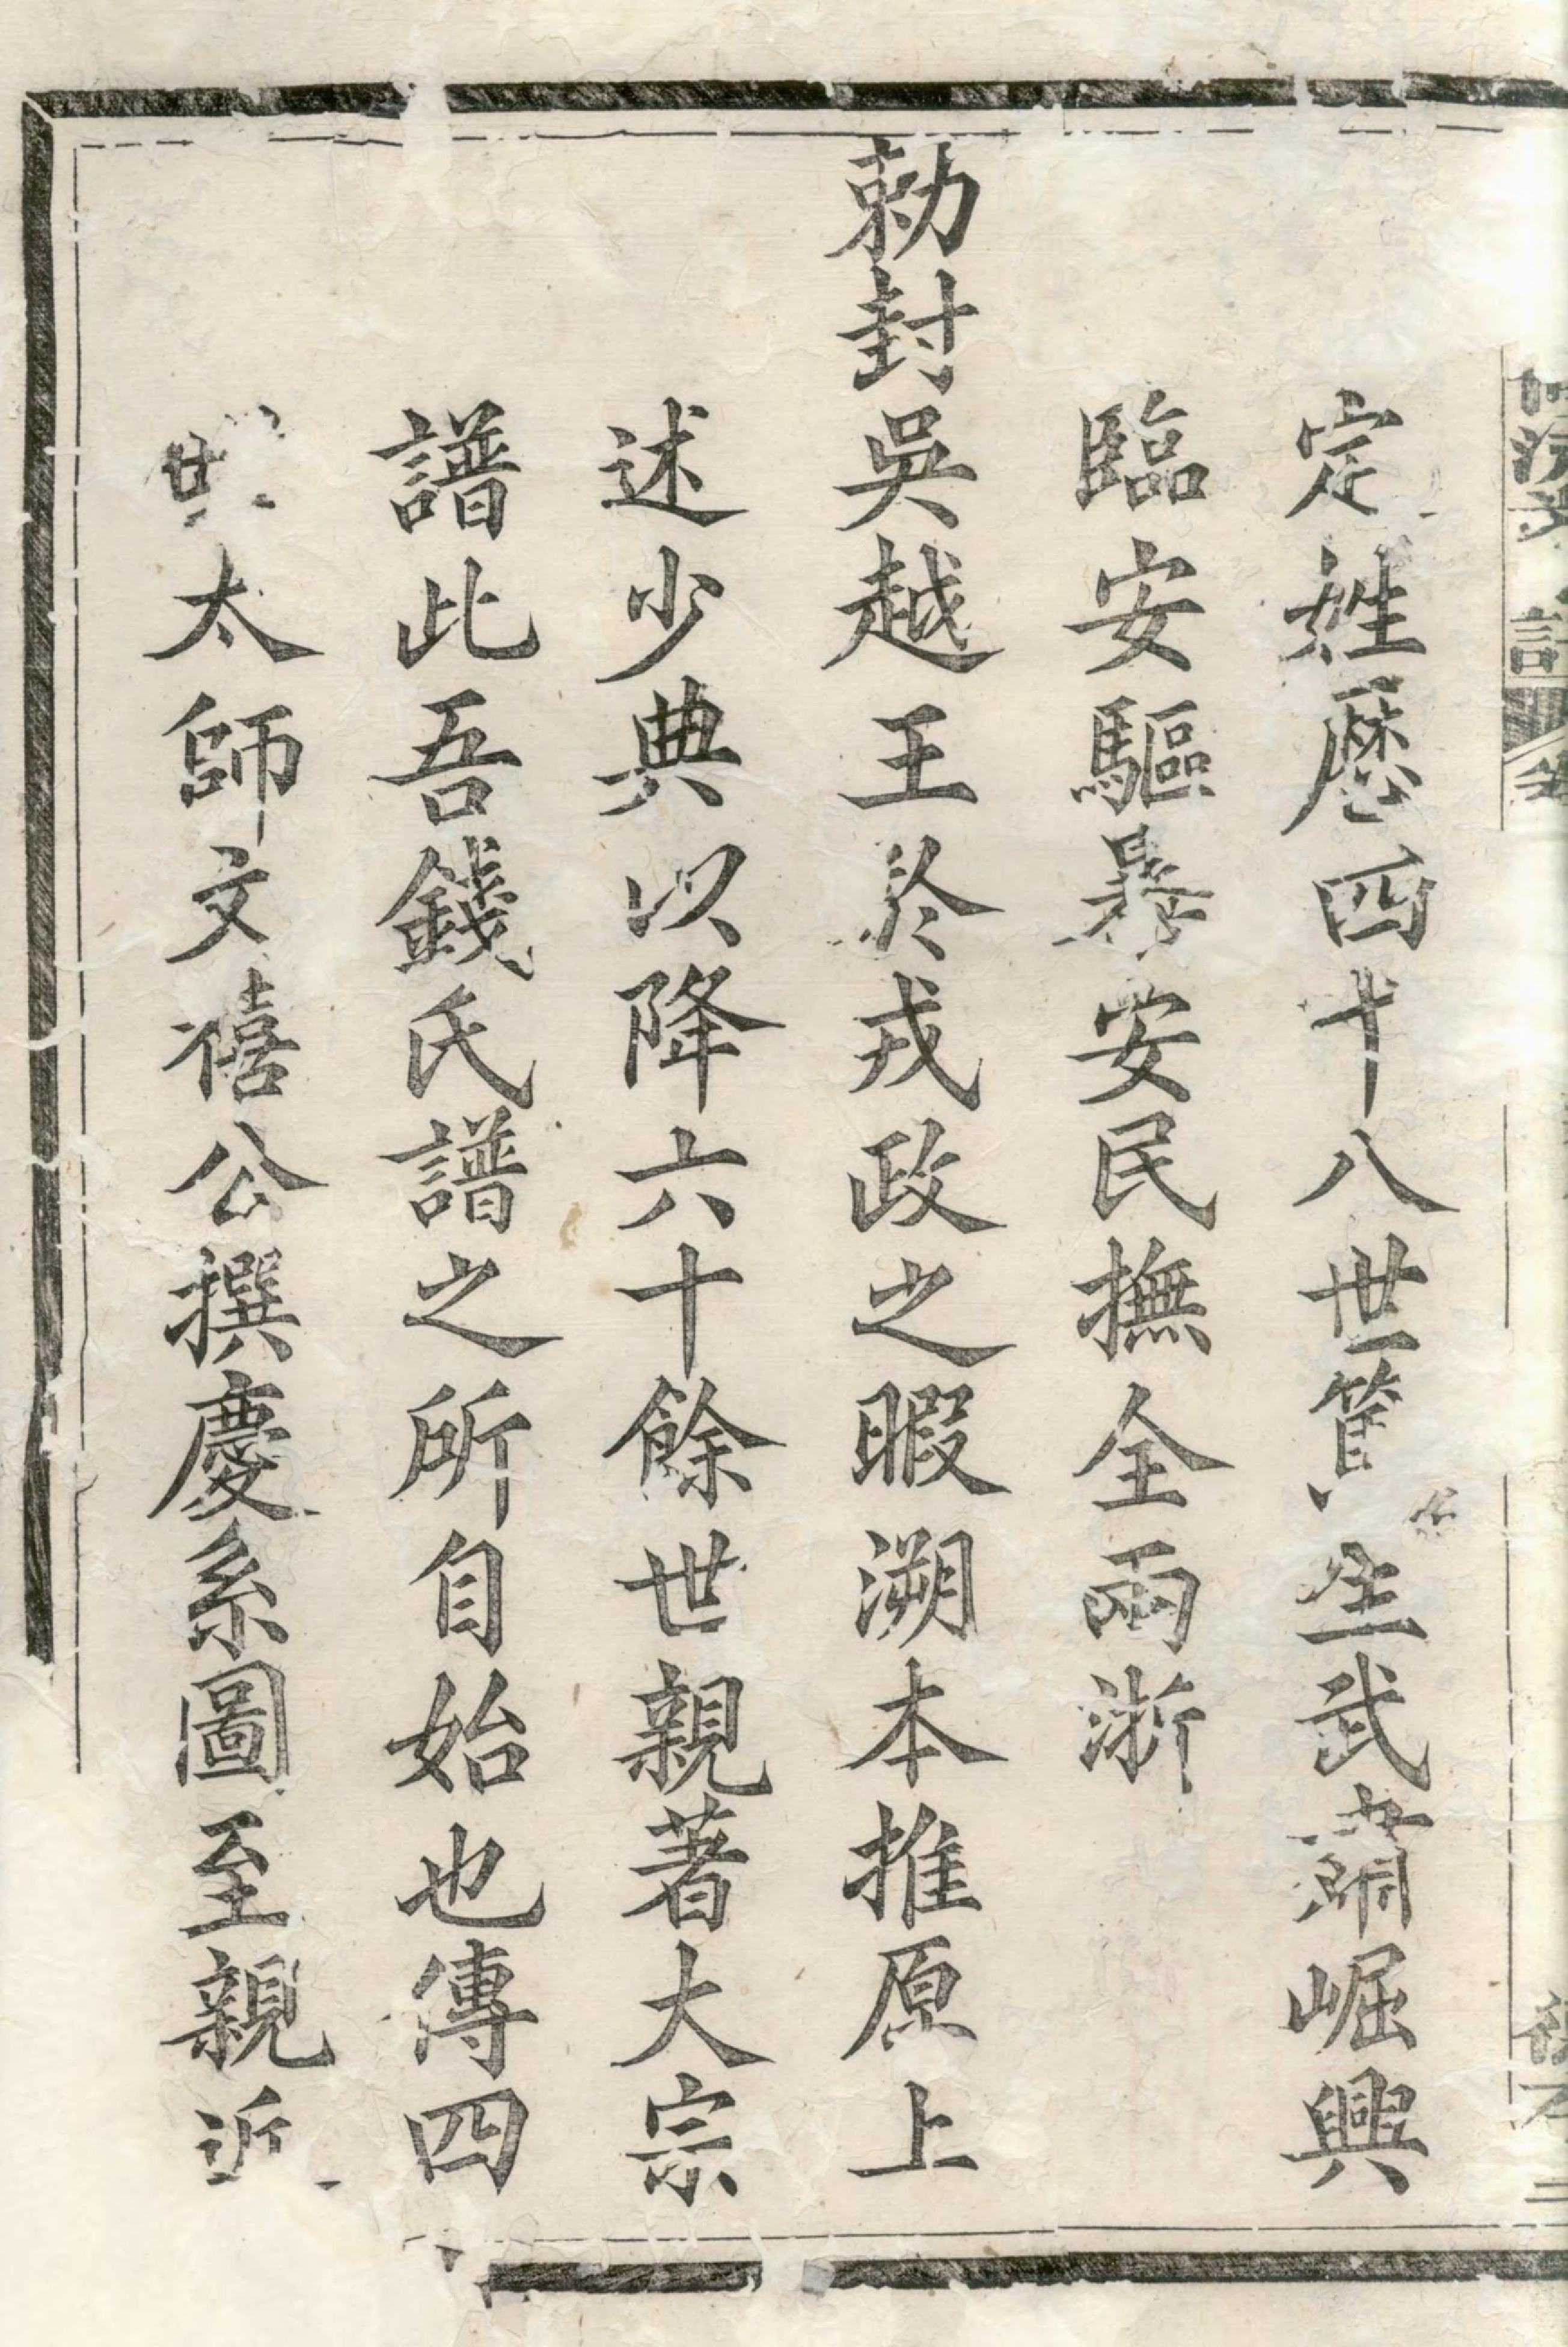 定姓歷四十八世篤生武肅崛興
臨安驅暴安民撫全兩浙
勅封吳越王於戎政之暇溯本推原上
述少典以降六十餘世親著大宗
譜此吾錢氏譜之所自始也傳四
世太師文禧公撰慶系圖至親近